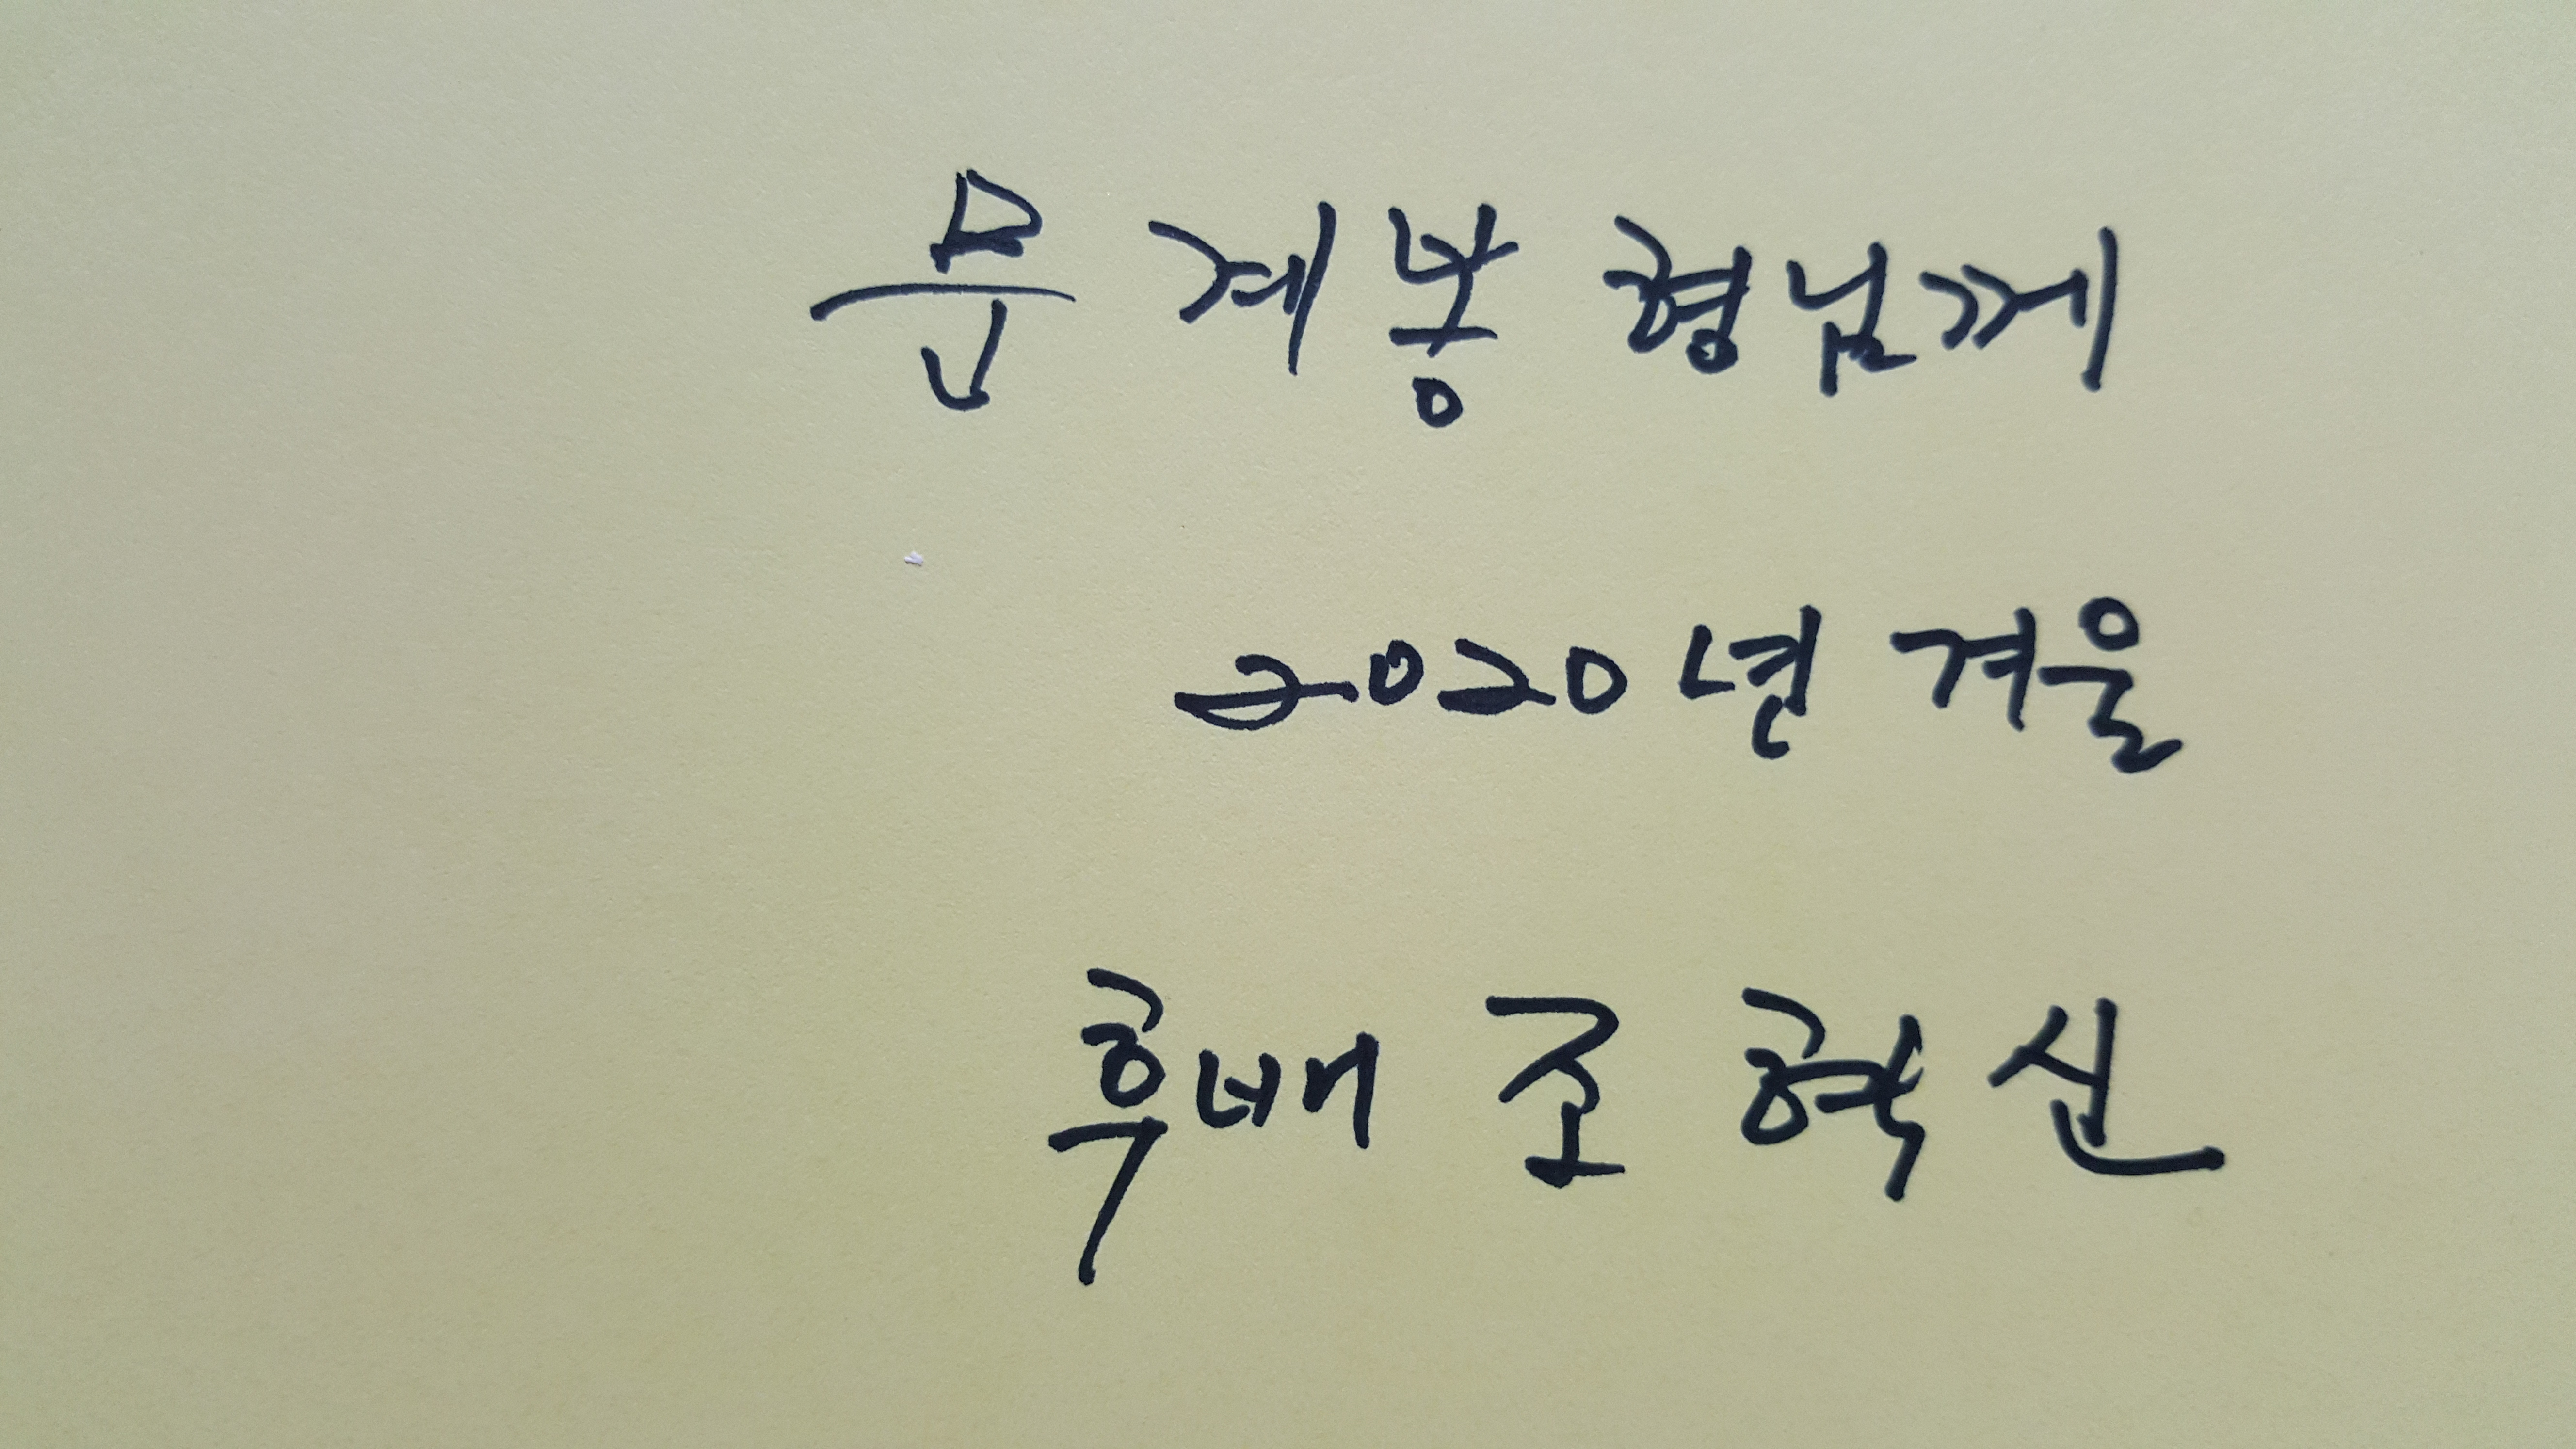 문계봉 형님께
2020년 겨울
후배 조혁신